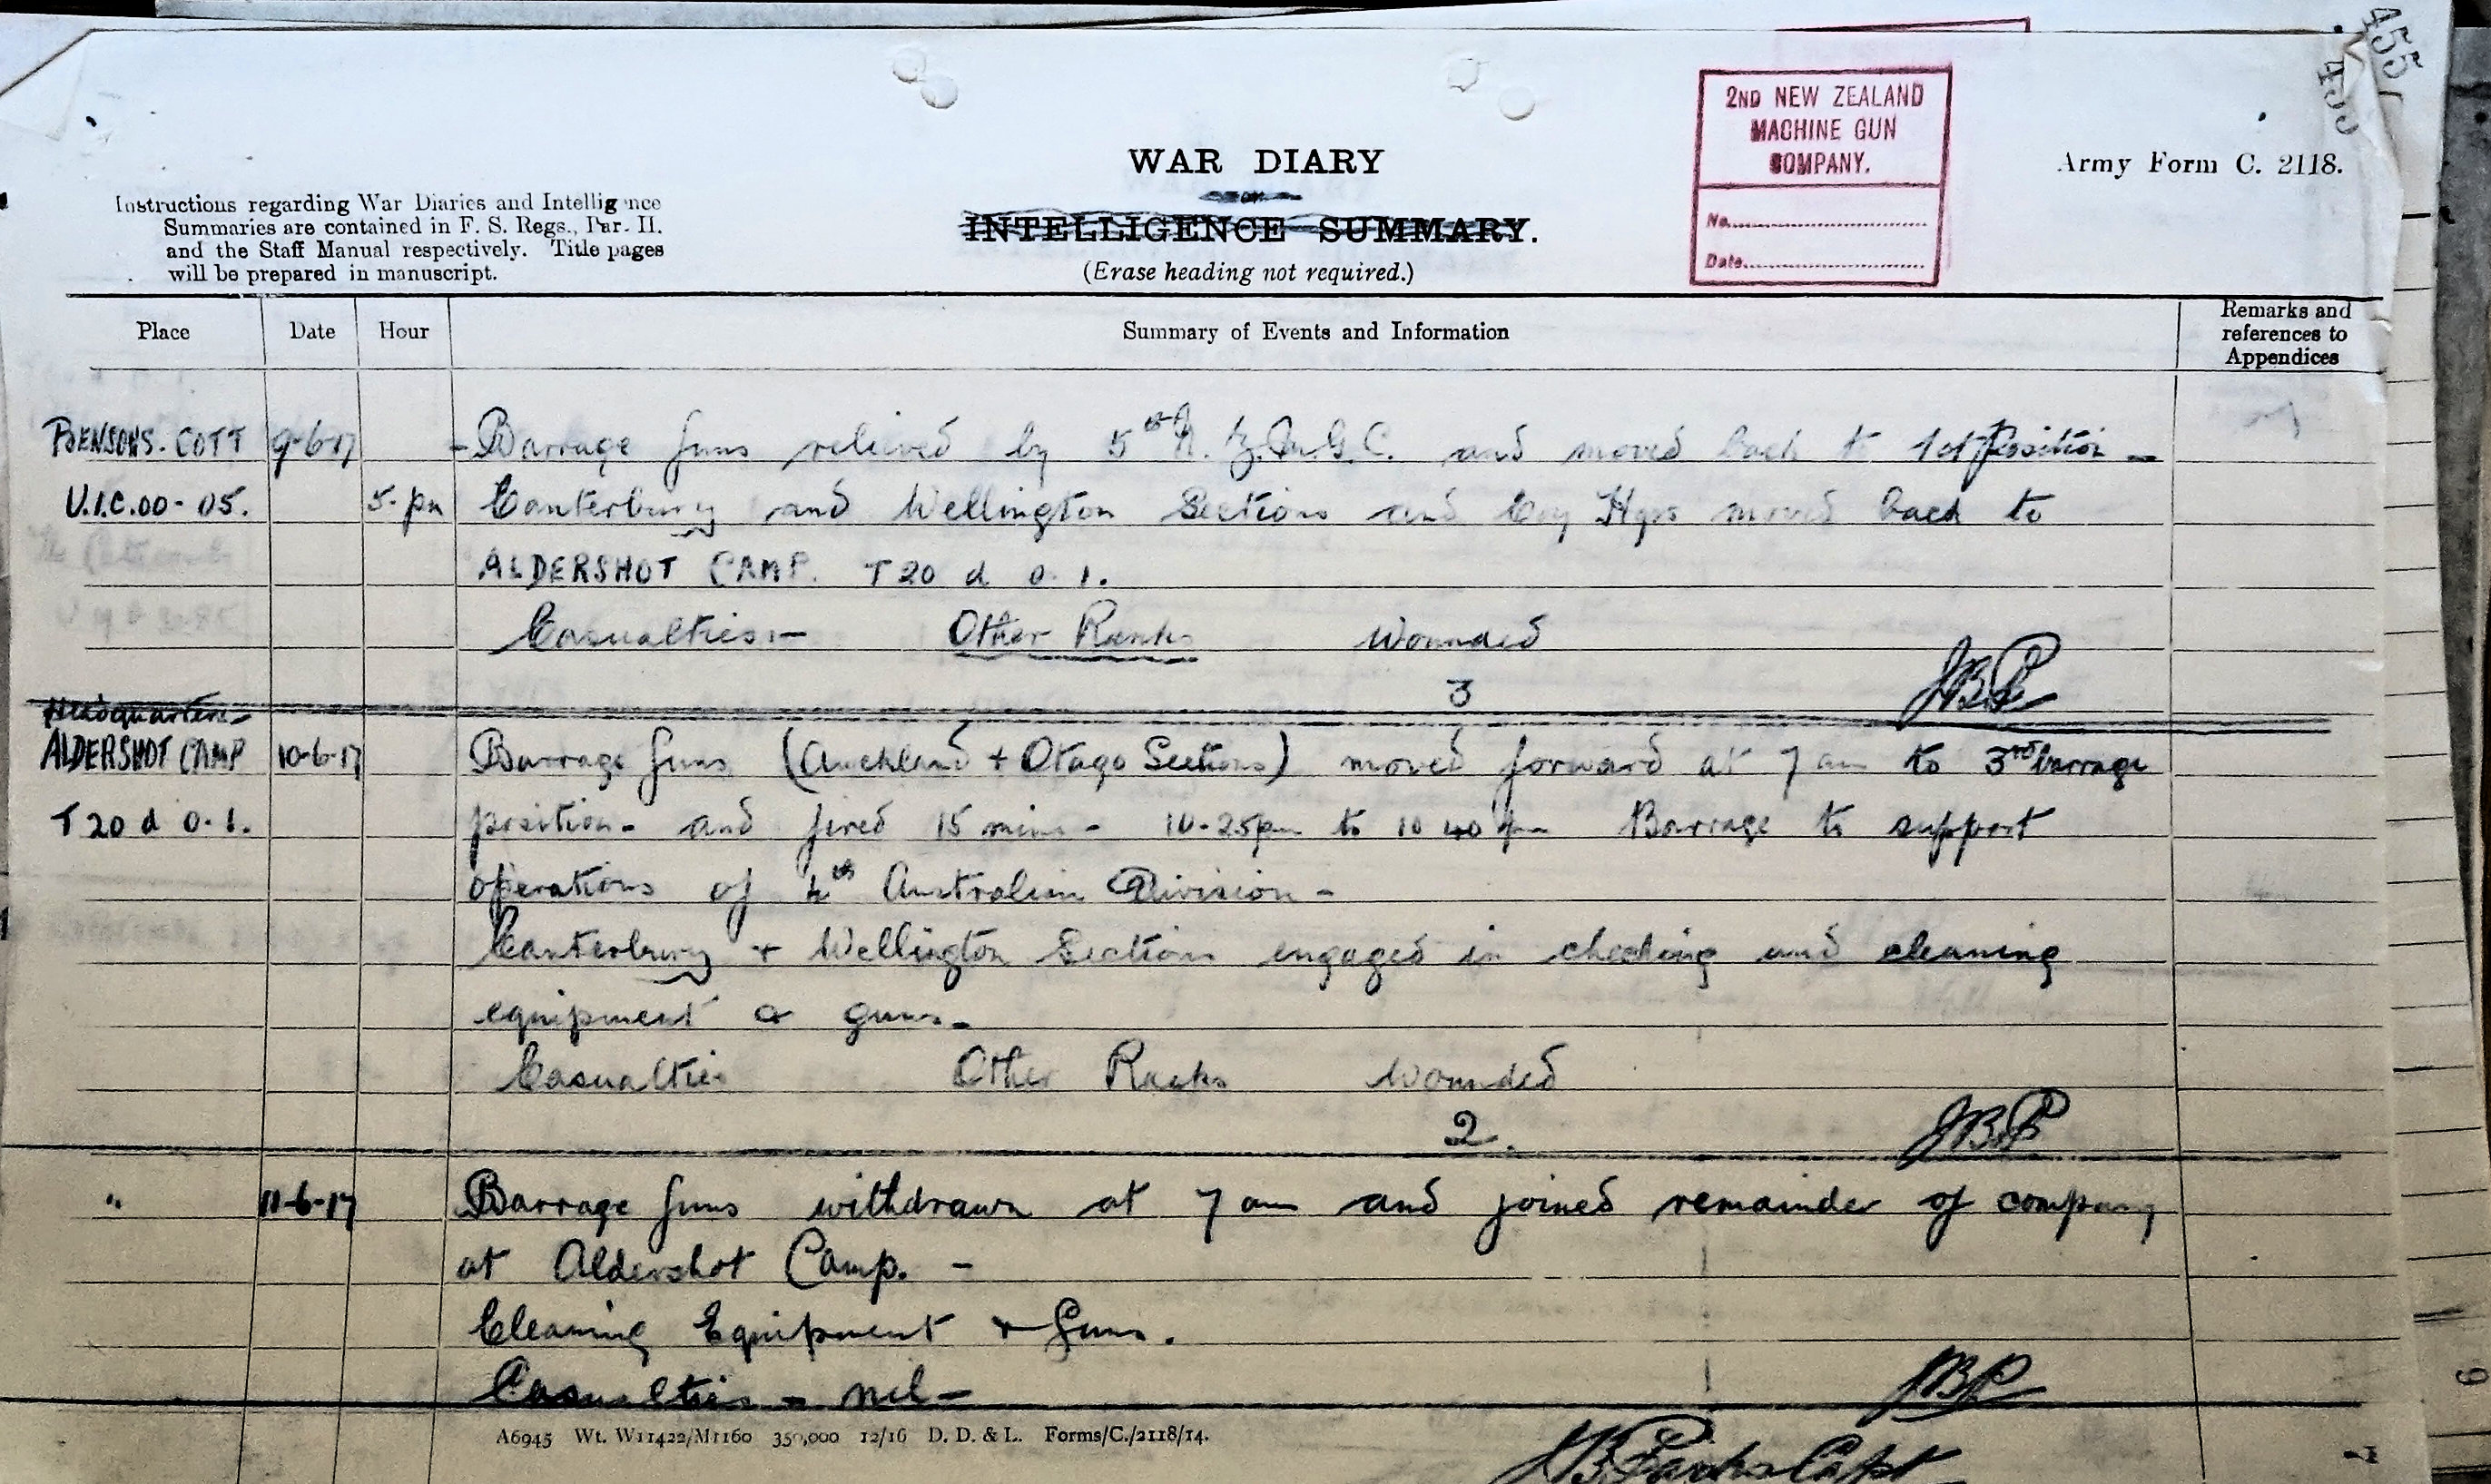 455
2ND NEW ZEALAND
MACHINE GUN
COMPANY.
No.
Date
WAR DIARY
or
INTELLIGENCE SUMMARY.
(Erase heading not required.)
Army Form C. 2118.
Instructions regarding War Diaries and Intelligence
Summaries are contained in F. S. Regs., Par. II.
and the Staff Manual respectively. Title pages
will be prepared in manuscript.
Place Date Hour Summary of Events and Information Remarks and references to Appendices
BENSONS. COTT 9-6-17 - Barrage Guns relieved by 5th N.Z.M.G.C. and moved back to 1st position -
U.1.C.00-05. 5. pm Canterbury and Wellington Sections and Coy Hqrs moved back to
ALDERSHOT CAMP. T20 d 0.1.
Casualties:- Other Ranks Wounded
3 JBP
Headquarters
ALDERSHOT CAMP 10-6-17 Barrage Guns (Auckland + Otago Sections) moved forward at 7 am to 3rd barrage
T20 d 0.1. position - and fired 15 mins - 10-25pm to 10 40 pm Barrage to support
operations of 4th Australian Division -
Canterbury + Wellington Sections engaged in checking and cleaning
equipment & guns -
Casualties Other Ranks Wounded
2. JBP
" 11-6-17 Barrage Guns withdrawn at 7 am and joined remainder of company
at Aldershot Camp. -
Cleaning Equipment + Guns.
Casualties - nil - JBP
A6945 Wt. W11422/M1160 350,000 12/16 D. D. & L. Forms/C./2118/14.
JB Parks Capt